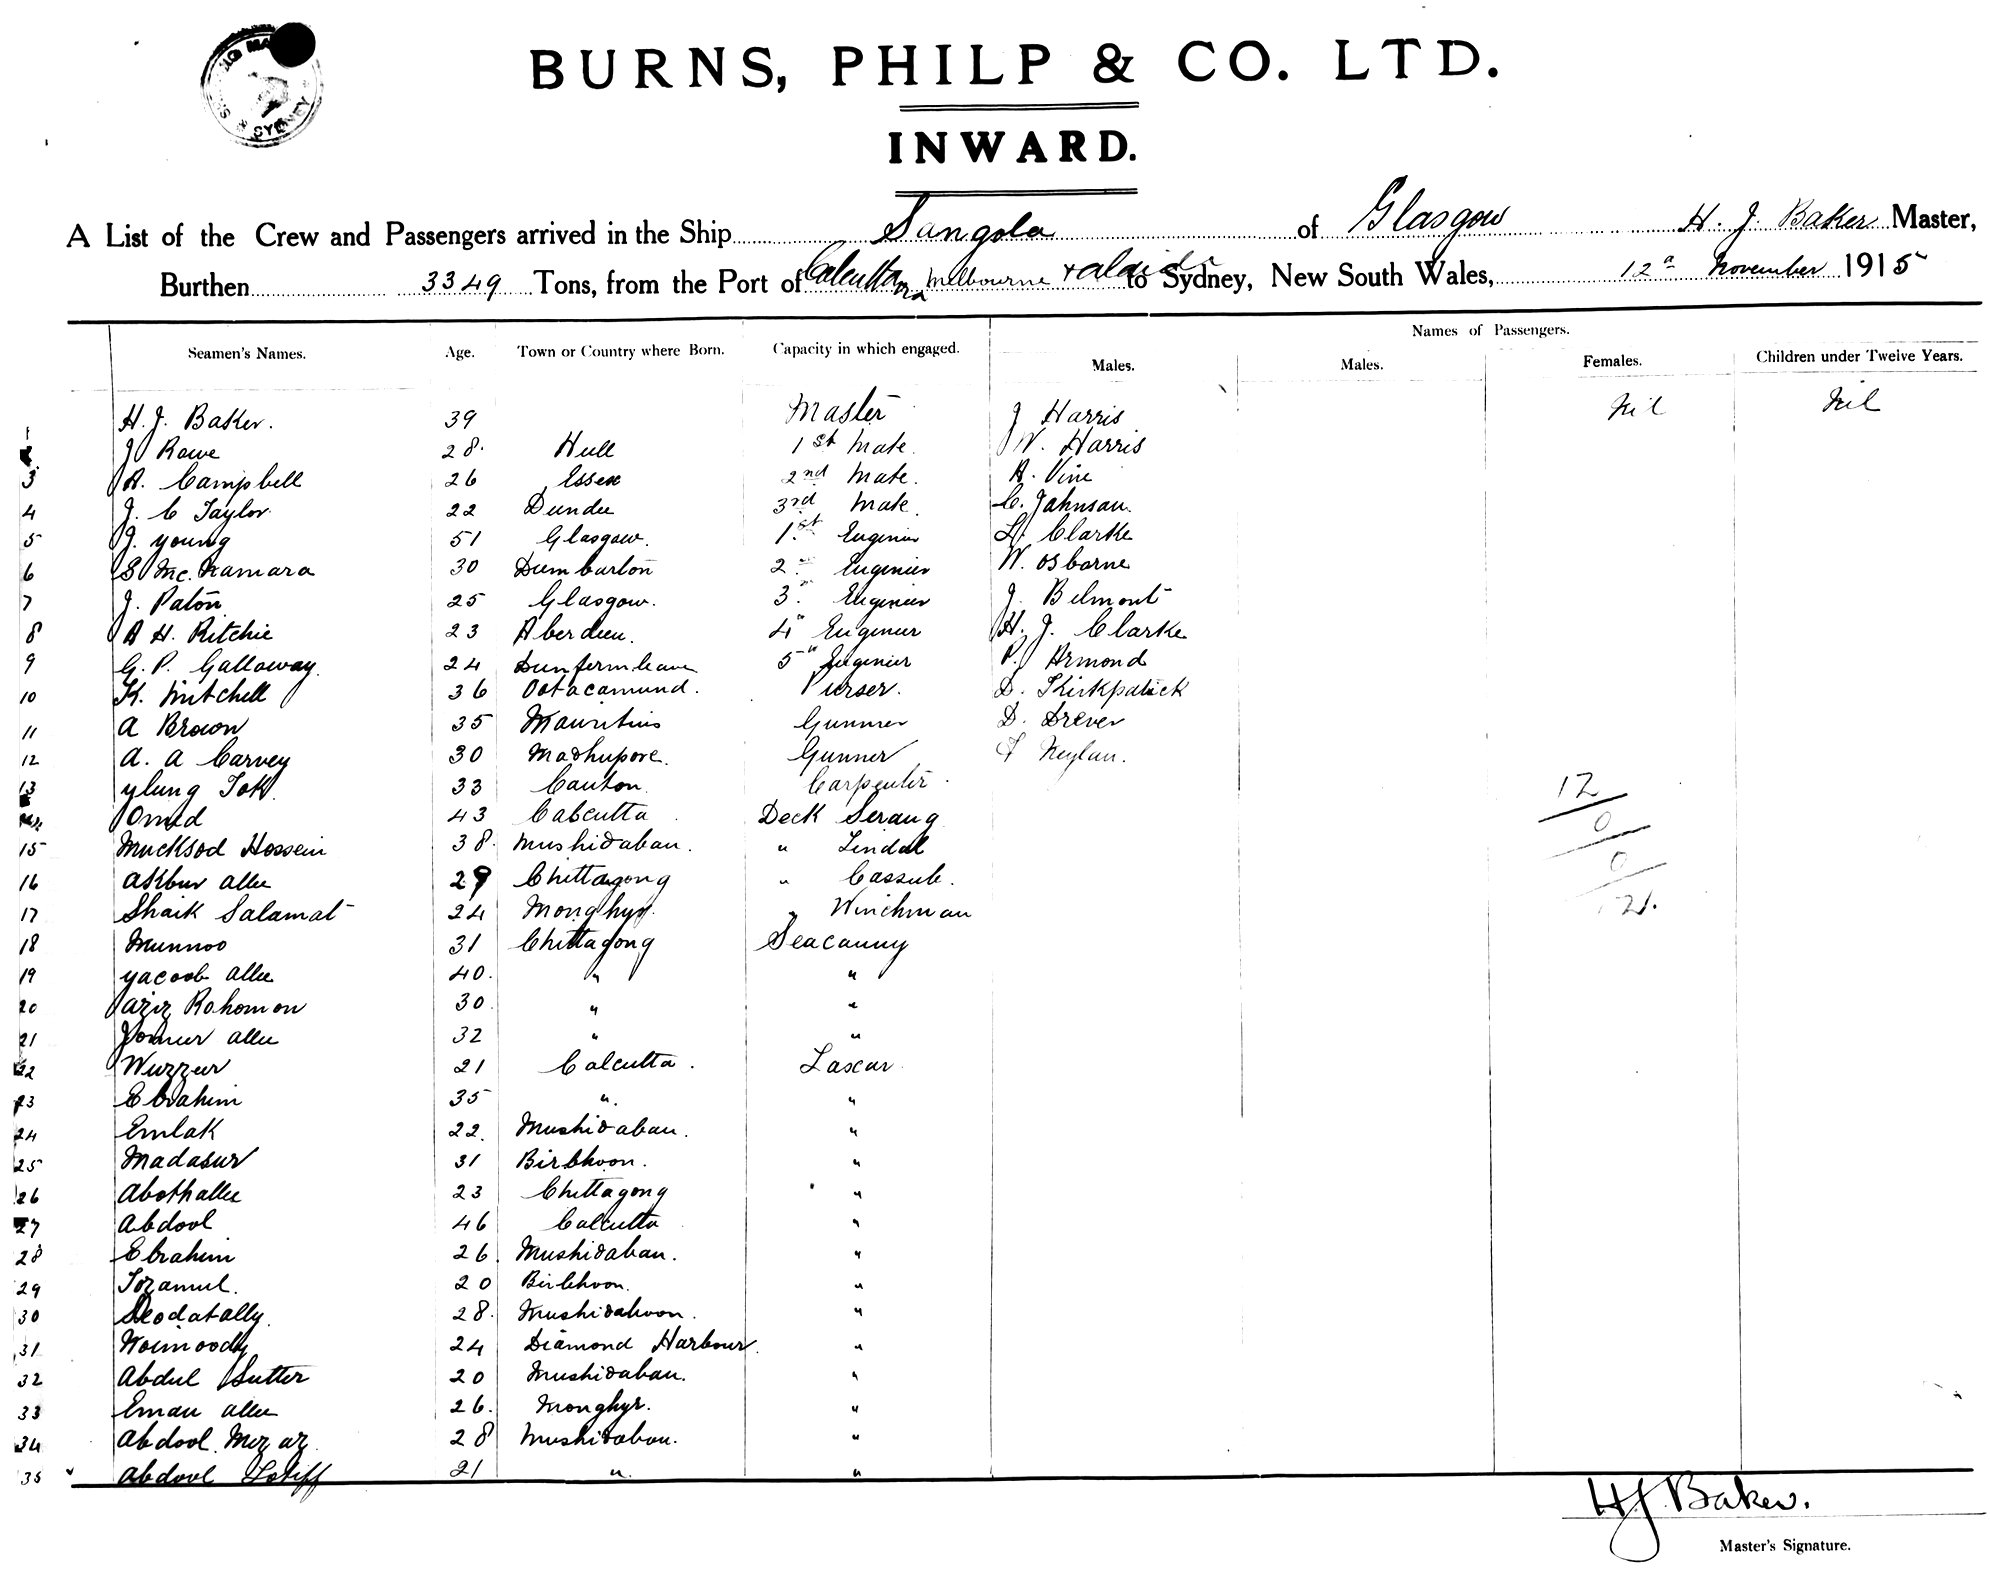 SYDNEY
BURNS, PHILP & CO. LTD.
INWARD.
A List of the Crew and Passengers arrived in the Ship Sangola of Glasgow H. J. Baker Master,
Burthen 3349 Tons, from the Port of Calcutta via Melbourne + to Sydney, New South Wales, 12 November 1915
Names of Passengers.
Seamen's Names. Age. Town or Country where Born. Capacity in which engaged. Males. Males. Females. Children under Twelve Years.
1 H. J. Baker. 39 Master J Harris Nil Nil
J Rowe 28. Hull 1st Mate. W. Harris
3 A. Campbell 26 Essex 2nd Mate. A. Vine
4 J. C Taylor 22 Dundee 3rd Mate. C. Johnson.
5 J. Young 51 Glasgow. 1st Enginier L. Clarke
6 S McNamara 30 Dumbarton 2" Enginier W. Osborne
7 J. Paton 25 Glasgow. 3" Enginier J. Belmont
8 A H. Ritchie 23 Aberdeen. 4" Enginier H. J. Clarke
9 G. P. Galloway. 24 5" Enginier P. Armond
10 K. Mitchell 36 Ootacamund. Purser. D. Kirkpatrick
11 A Brown 35 Mauritius Gunner D. Drever
12 A. A Carvey 30 Madhupore. Gunner Neylan.
13 33 Canton. Carpenter
12
43 Calcutta Deck Serang
0
15 Mucksod Hossein 38. Mushidaban. " Tindal
0
16 Akbur Allee 29 Chittagong " Cassub.
12.
17 Shaik Salamat 24 Monghyr. " Winchman
18 Munnoo 31 Chittagong Seacunny
19 Yacoob Allee 40. " "
20 Aziz Rohomon 30. " "
21 Allee 32 " "
22 Wuzzur 21 Calcutta. Lascar
23 Ebrahim 35 " "
24 Emlak 22. Mushidaban. "
25 Madasur 31 Birbhoon. "
26 Abothallee 23 Chittagong "
27 Abdool 46 Calcutta "
28 Ebrahim 26. Mushidaban. "
29 Tozamul. 20 Birbhoon. "
30 28. Mushidaboon. "
31 24 Diamond Harbour. "
32 Abdul Sutter 20 Mushidaban. "
33 Eman Allee 26. Monghyr. "
34 Abdool 28 Mushidaban. "
35 Abdool Lotiff 21 " "
H J. Baker.
Master's Signature.